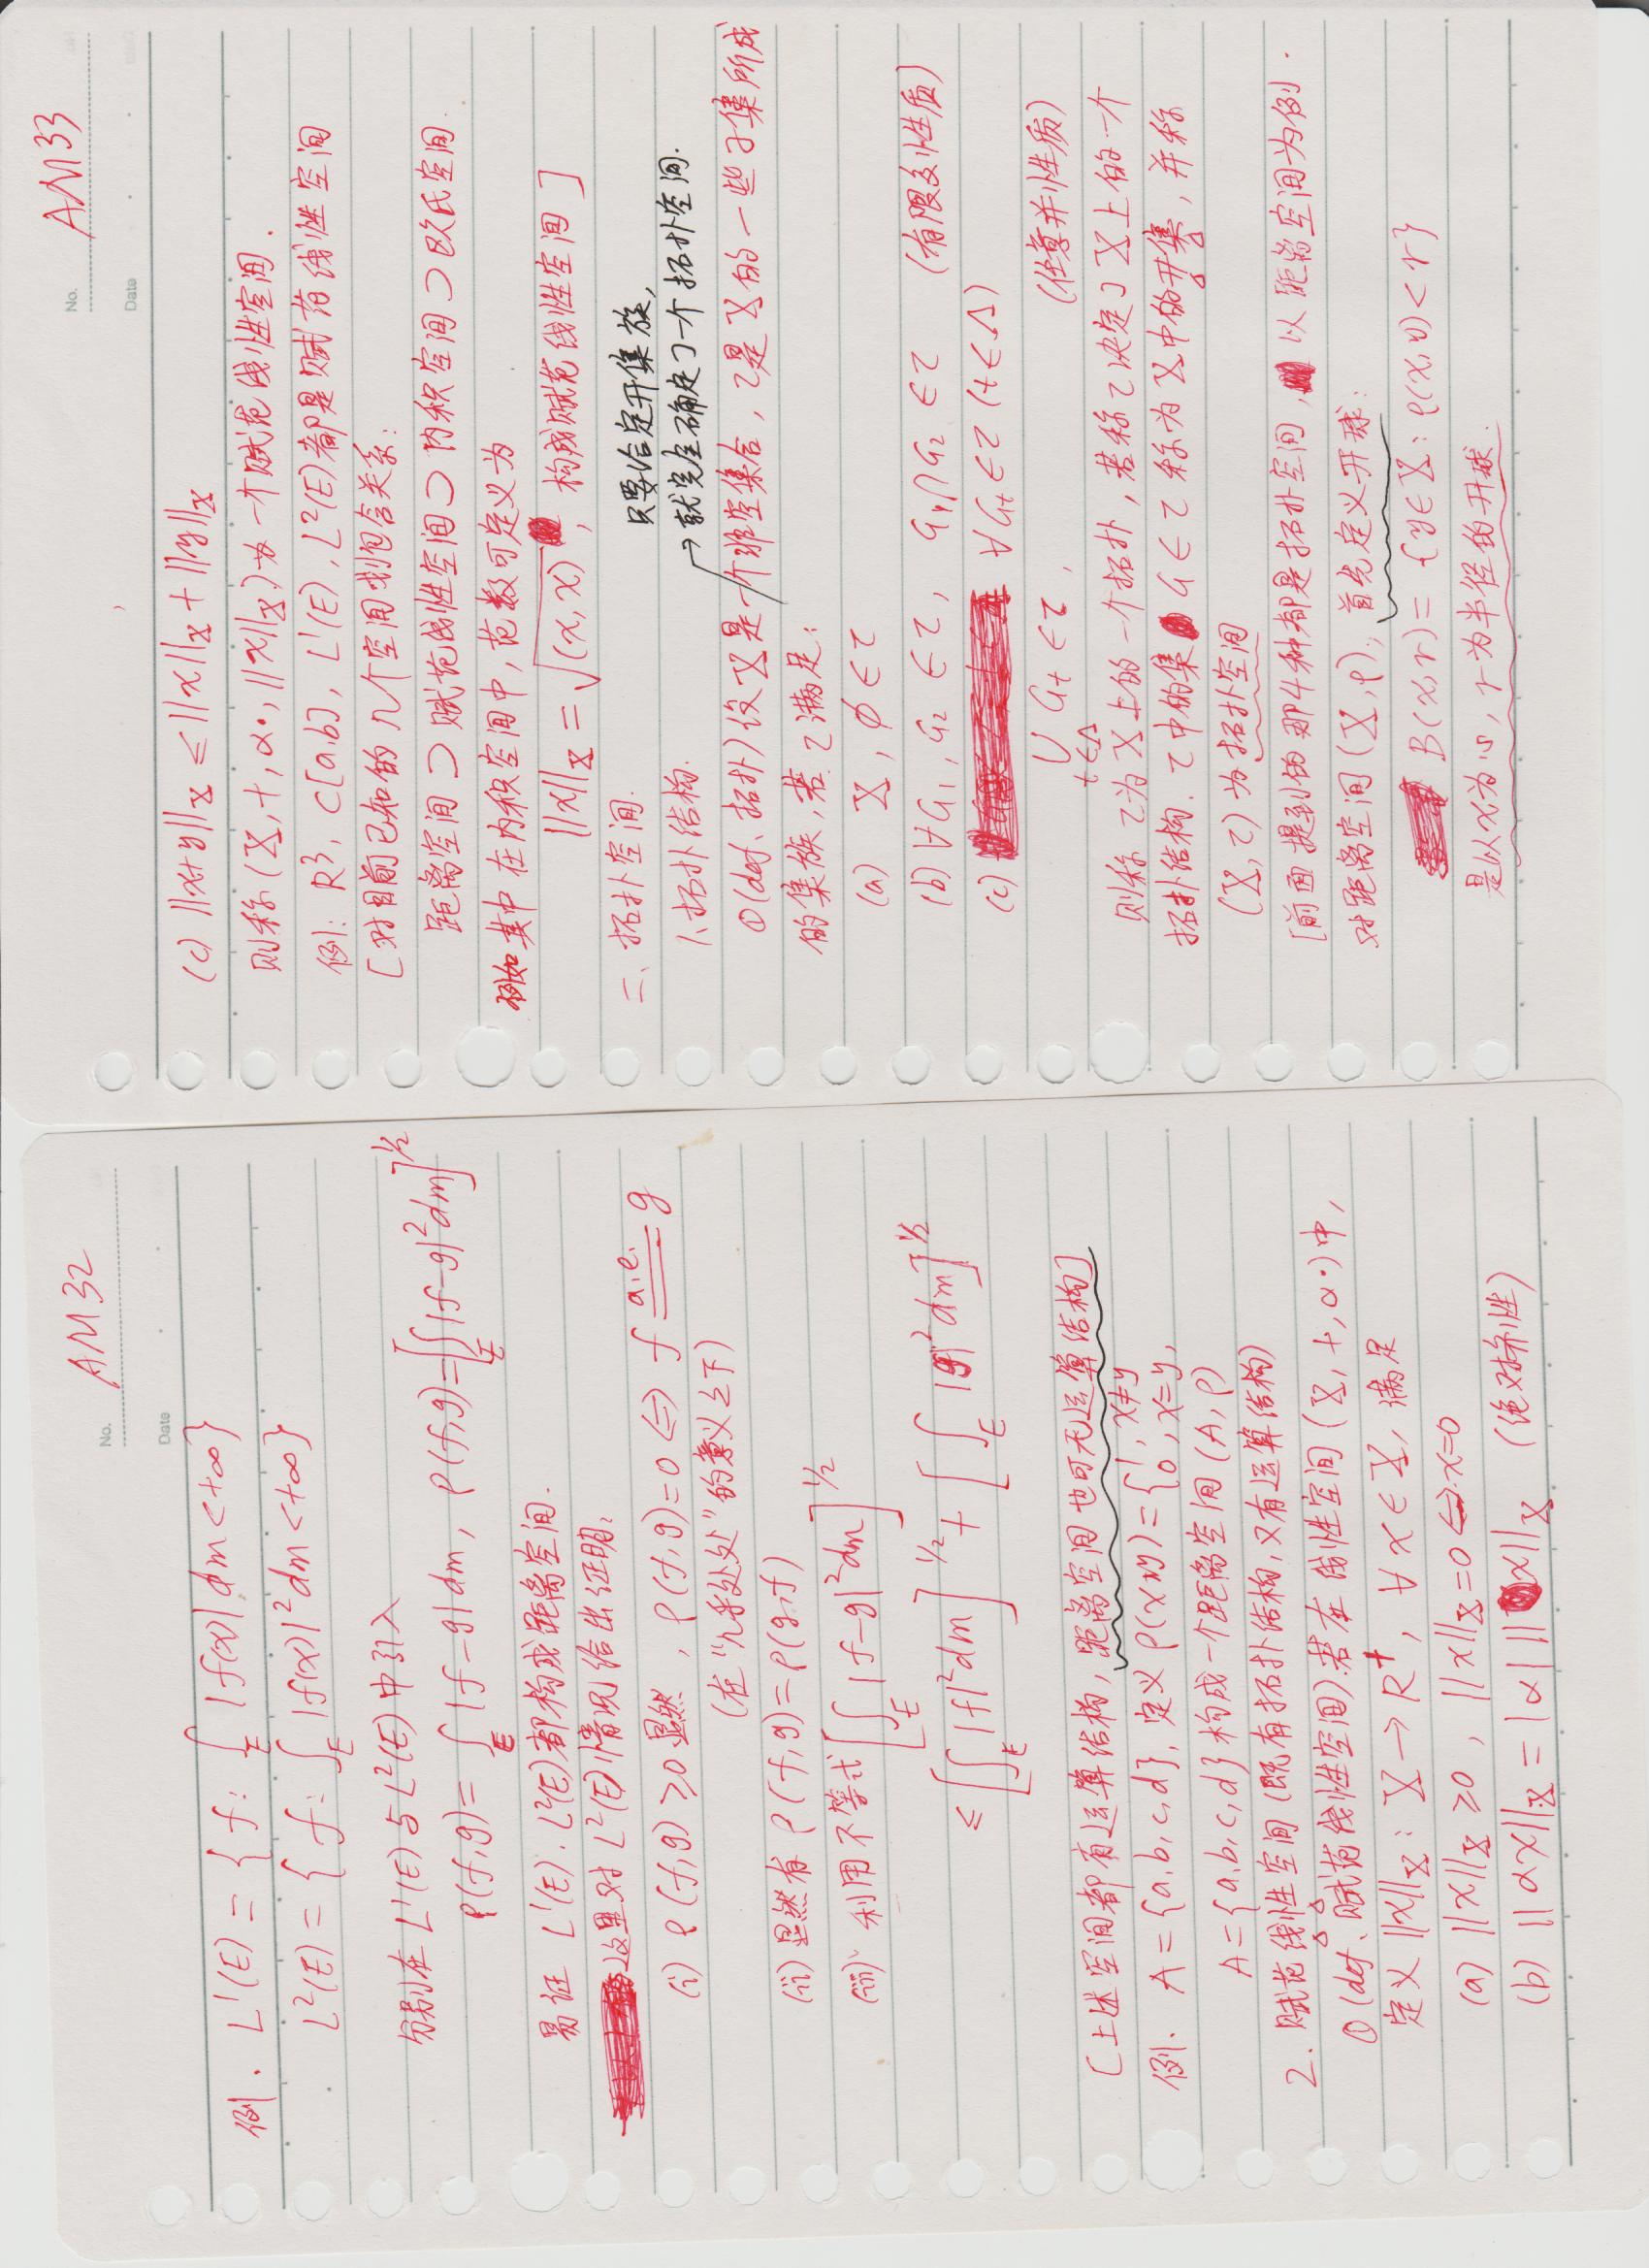 No. AM32
Date
例. L¹(E) = { f: ∫_E |f(x)| dm < +∞}
L²(E) = { f: ∫_E |f(x)|² dm < +∞}
分别在 L¹(E) 与 L²(E) 中引入
ρ(f,g) = ∫_E |f-g| dm, ρ(f,g) = [∫_E |f-g|² dm]^{1/2}
易证 L¹(E). L²(E) 都构成距离空间.
这里对 L²(E) 情况给出证明:
(i) ρ(f,g) ≥0 显然, ρ(f,g)=0 ⇔ f a.e. = g
(在“几乎处处”的意义之下)
(ii) 显然有 ρ(f,g)=ρ(g,f)
(iii) 利用不等式 [∫_E |f-g|² dm]^{1/2}
≤ [∫_E |f|² dm]^{1/2} + [∫_E |g|² dm]^{1/2}
[上述空间都有运算结构, 距离空间也可无运算结构]
例. A={a,b,c,d}, 定义 ρ(x,y)={1, x≠y
0, x=y,
A={a,b,c,d} 构成一个距离空间 (A,ρ)
2. 赋范线性空间 (既有拓扑结构, 又有运算结构)
①(def、赋范线性空间).若在线性空间 (X, +, α·) 中,
定义 ||x||_X : X → R⁺, ∀x∈X, 满足
(a) ||x||_X ≥0, ||x||_X=0 ⇔ x=0
(b) ||αx||_X = |α| ||x||_X (绝对齐性)
No. AM33
Date
(c) ||x+y||_X ≤ ||x||_X + ||y||_X
则称 (X, +, α·, ||x||_X) 为一个赋范线性空间.
例: R³, C[a,b], L¹(E), L²(E) 都是赋范线性空间
[对目前已知的几个空间划包含关系:
距离空间 ⊃ 赋范线性空间 ⊃ 内积空间 ⊃ 欧氏空间.
例如其中在内积空间中, 范数可定义为
||x||_X = √(x,x), 构成赋范线性空间]
二、拓扑空间.
只要给定开集族,
1、拓扑结构.
→就完全确定了一个拓扑空间.
①(def、拓扑) 设 X 是一个非空集合, τ是 X 的一些子集所成
的集族, 若 τ 满足:
(a) X, ∅ ∈ τ
(b) ∀G₁, G₂ ∈ τ, G₁∩G₂ ∈ τ (有限交性质)
(c) ∀G_t ∈ τ (t∈Λ)
∪_{t∈Λ} G_t ∈ τ, (任意并性质)
则称 τ为 X 上的一个拓扑, 若称 τ决定了 X 上的一个
拓扑结构. τ中的集 G∈τ 称为 X 中的开集, 并称
(X, τ) 为拓扑空间
[前面提到的那4种都是拓扑空间, 以距离空间为例.
对距离空间 (X,ρ), 首先定义开球:
B(x,r) = {y∈X: ρ(x,y)<r}
是以x为心, r为半径的开球.